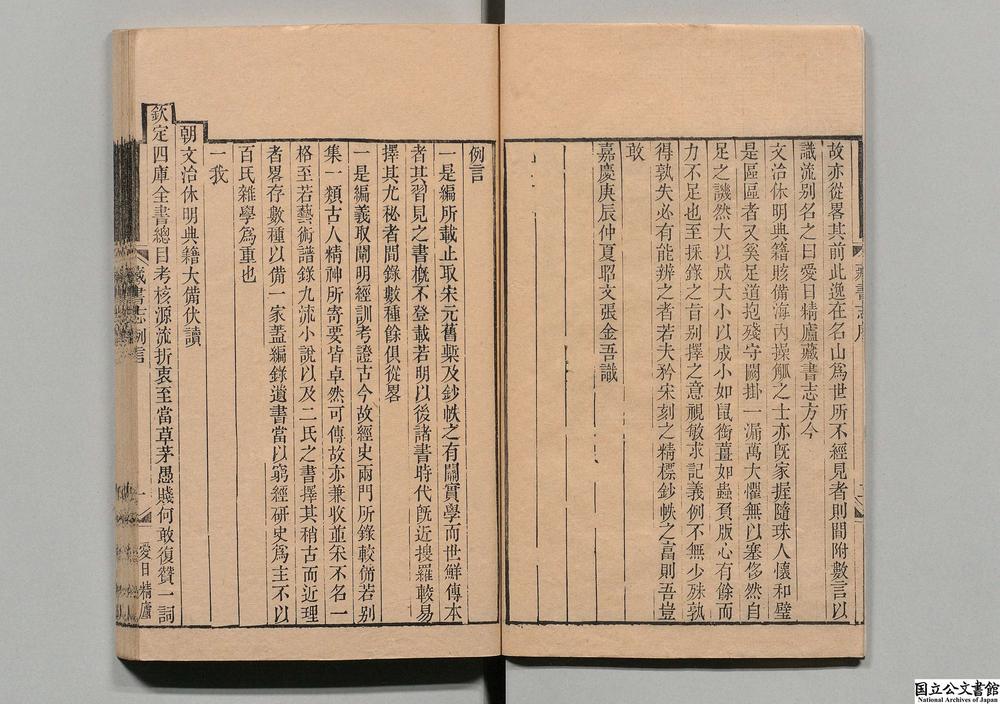 故亦從畧其前此逸在名山爲世所不經見者則間附數言以
識流别名之曰愛日精廬藏書志方今
文治休明典籍賅備海内操觚之士亦旣家握隨珠人懷和璧
是區區者又奚足道抱殘守闕掛一漏萬大懼無以塞侈然自
足之譏然大以成大小以成小如鼠銜薑如蟲負版心有餘而
力不足也至採錄之旨别擇之意視敏求記義例不無少殊孰
得孰失必有能辨之者若夫矜宋刻之精標鈔帙之富則吾豈
敢
嘉慶庚辰仲夏昭文張金吾識
藏書志序
例言
一是編所載止取宋元舊槧及鈔帙之有關實學而世鮮傳本
者其習見之書槪不登載若明以後諸書時代旣近搜羅較易
擇其尤秘者間錄數種餘俱從畧
一是編義取闡明經訓考證古今故經史兩門所錄較備若别
集一類古人精神所寄要皆卓然可傳故亦兼收並采不名一
格至若藝術譜錄九流小說以及二氏之書擇其稍古而近理
者畧存數種以備一家蓋編錄遺書當以窮經硏史爲主不以
百氏雜學爲重也
一我
朝文治休明典籍大備伏讀
欽定四庫全書總目考核源流折衷至當草茅愚賤何敢復贊一詞
藏書志例言
一
愛日精廬
国立公文書館
National Archives of Japan